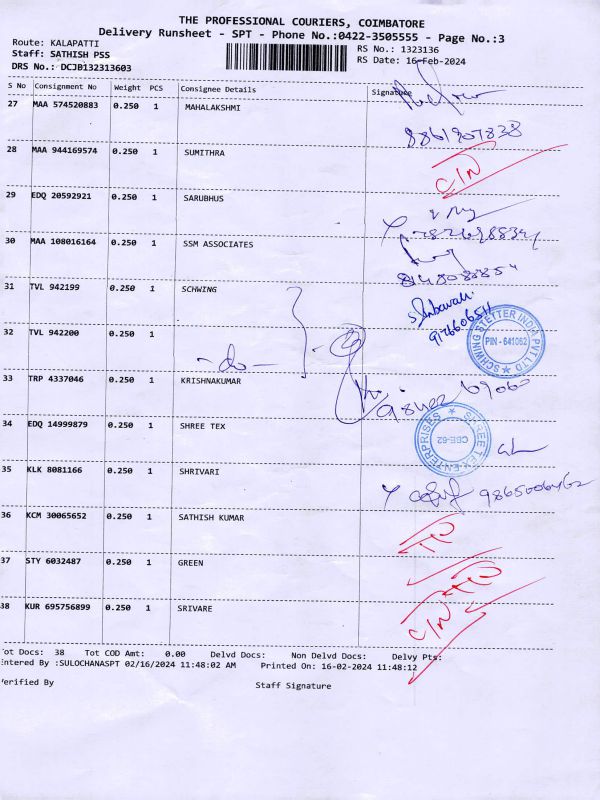 THE PROFESSIONAL COURIERS, COIMBATORE
Delivery Runsheet - SPT - Phone No.:0422-3505555 - Page No.:3
Route: KALAPATTI
RS No.: 1323136
Staff: SATHISH PSS
RS Date: 16-Feb-2024
DRS No.: DCJB132313603
S No Consignment No Weight PCS Consignee Details Signature
27 MAA 574520883 0.250 1 MAHALAKSHMI
8861807838
28 MAA 944169574 0.250 1 SUMITHRA
C/N
29 EDQ 20592921 0.250 1 SARUBHUS
30 MAA 108016164 0.250 1 SSM ASSOCIATES
31 TVL 942199 0.250 1 SCHWING
SCHWING STETTER INDIA PVT LTD
PIN - 641062
32 TVL 942200 0.250 1
-do-
33 TRP 4337046 0.250 1 KRISHNAKUMAR
34 EDQ 14999879 0.250 1 SHREE TEX
SHREE TEX ENTERPRISES
CBE-62
35 KLK 8081166 0.250 1 SHRIVARI
36 KCM 30065652 0.250 1 SATHISH KUMAR
37 STY 6032487 0.250 1 GREEN
38 KUR 695756899 0.250 1 SRIVARE
C/N
Tot Docs: 38 Tot COD Amt: 0.00 Delvd Docs: Non Delvd Docs: Delvy Pts:
Entered By :SULOCHANASPT 02/16/2024 11:48:02 AM Printed On: 16-02-2024 11:48:12
Verified By Staff Signature